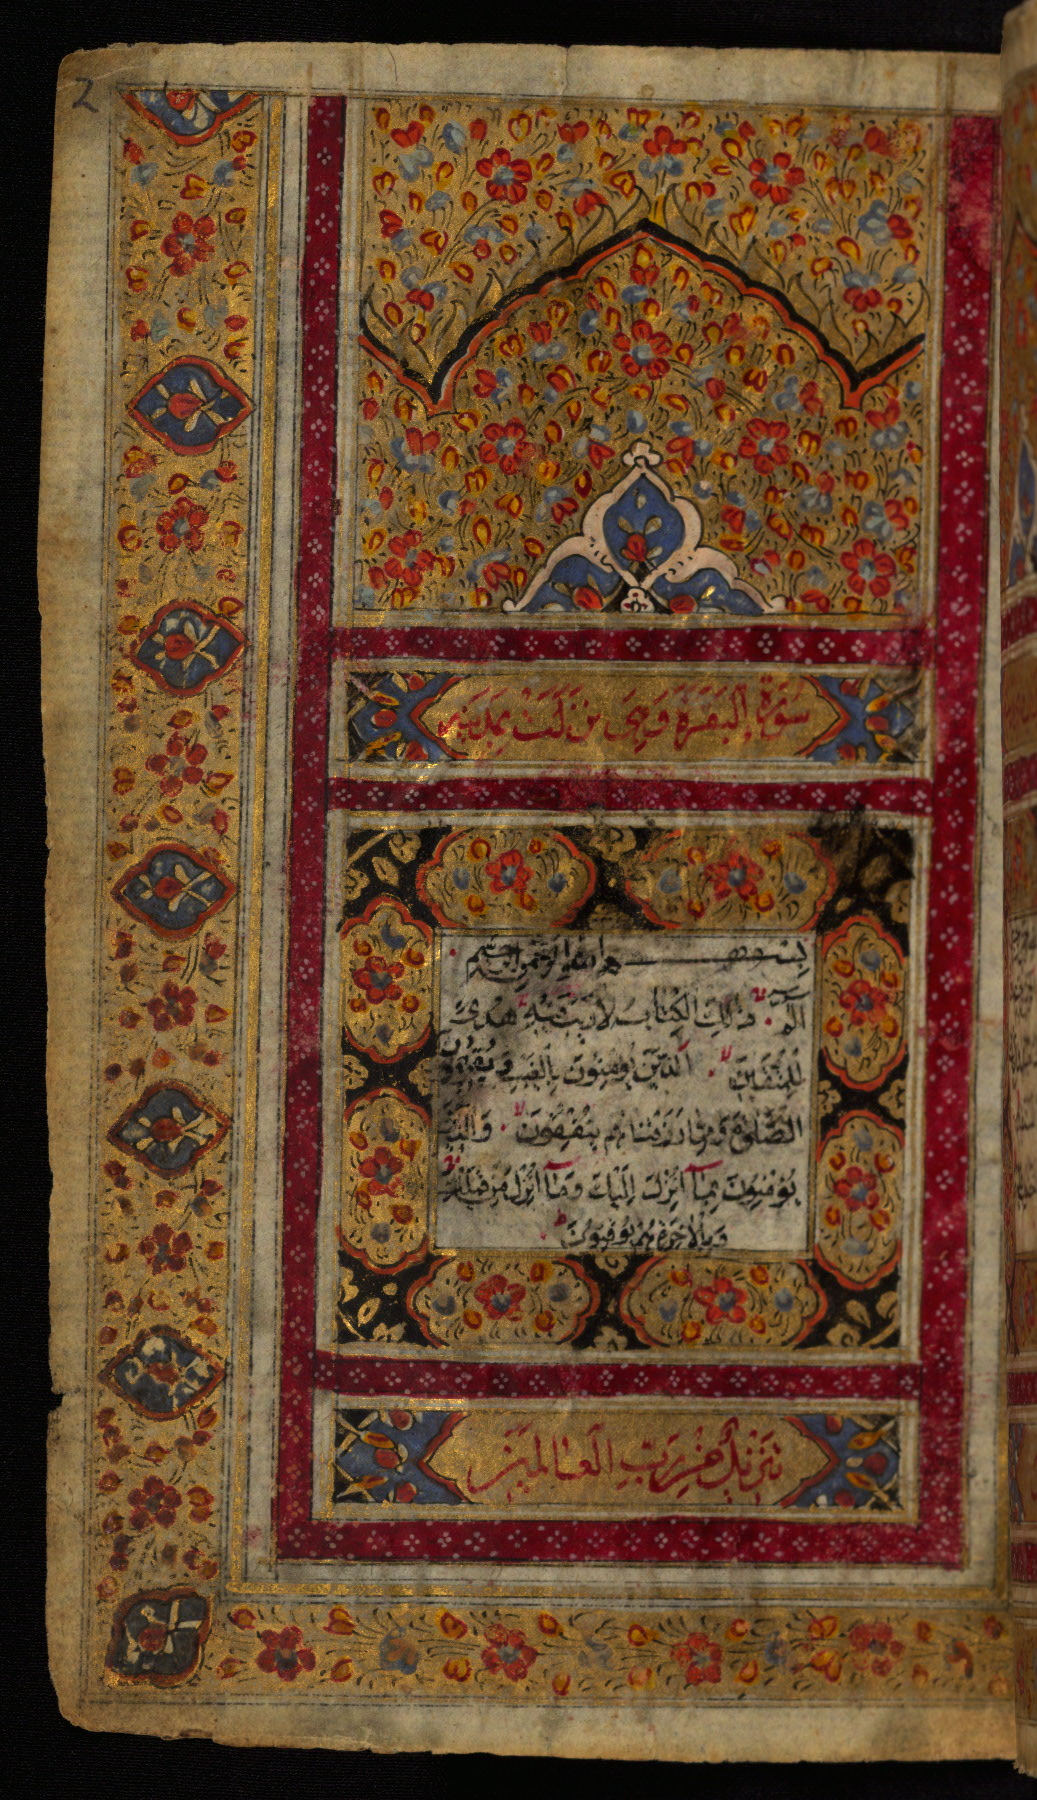 2
سُورَةُ الْبَقَرَةِ وَهِيَ نزلت بمدينه
بِسْمِ اللهِ الرَّحْمٰنِ الرَّحِيمِ
الٓمٓ ذٰلِكَ الْكِتَابُ لَا رَيْبَ فِيْهِ هُدًى
لِلْمُتَّقِينَ الَّذِينَ يُؤْمِنُونَ بِالْغَيْبِ وَيُقِيمُونَ
الصَّلٰوةَ وَمِمَّا رَزَقْنَاهُمْ يُنْفِقُونَ وَالَّذِينَ
يُؤْمِنُونَ بِمَآ اُنْزِلَ اِلَيْكَ وَمَآ اُنْزِلَ مِنْ قَبْلِكَ
وَبِالْاٰخِرَةِ هُمْ يُوقِنُونَ
تَنْزِيلٌ مِنْ رَبِّ الْعَالَمِينَ